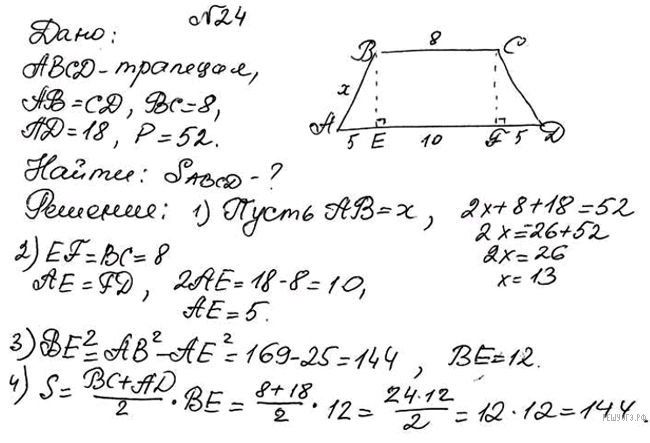 №24
Дано:
ABCD - трапеция,
AB = CD, BC = 8,
AD = 18, P = 52.
Найти: S_ABCD - ?
B 8 C
x
A 5 E 10 F 5 D
Решение: 1) Пусть AB = x, 2x + 8 + 18 = 52
2x = -26 + 52
2x = 26
x = 13
2) EF = BC = 8
AE = FD, 2AE = 18 - 8 = 10,
AE = 5.
3) BE² = AB² - AE² = 169 - 25 = 144, BE = 12.
4) S = (BC + AD)/2 · BE = (8 + 18)/2 · 12 = (24 · 12)/2 = 12 · 12 = 144.
РЕШУОГЭ.РФ